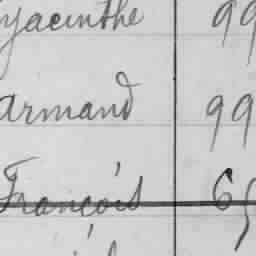 yacinthe 99
Armand 99
François 65